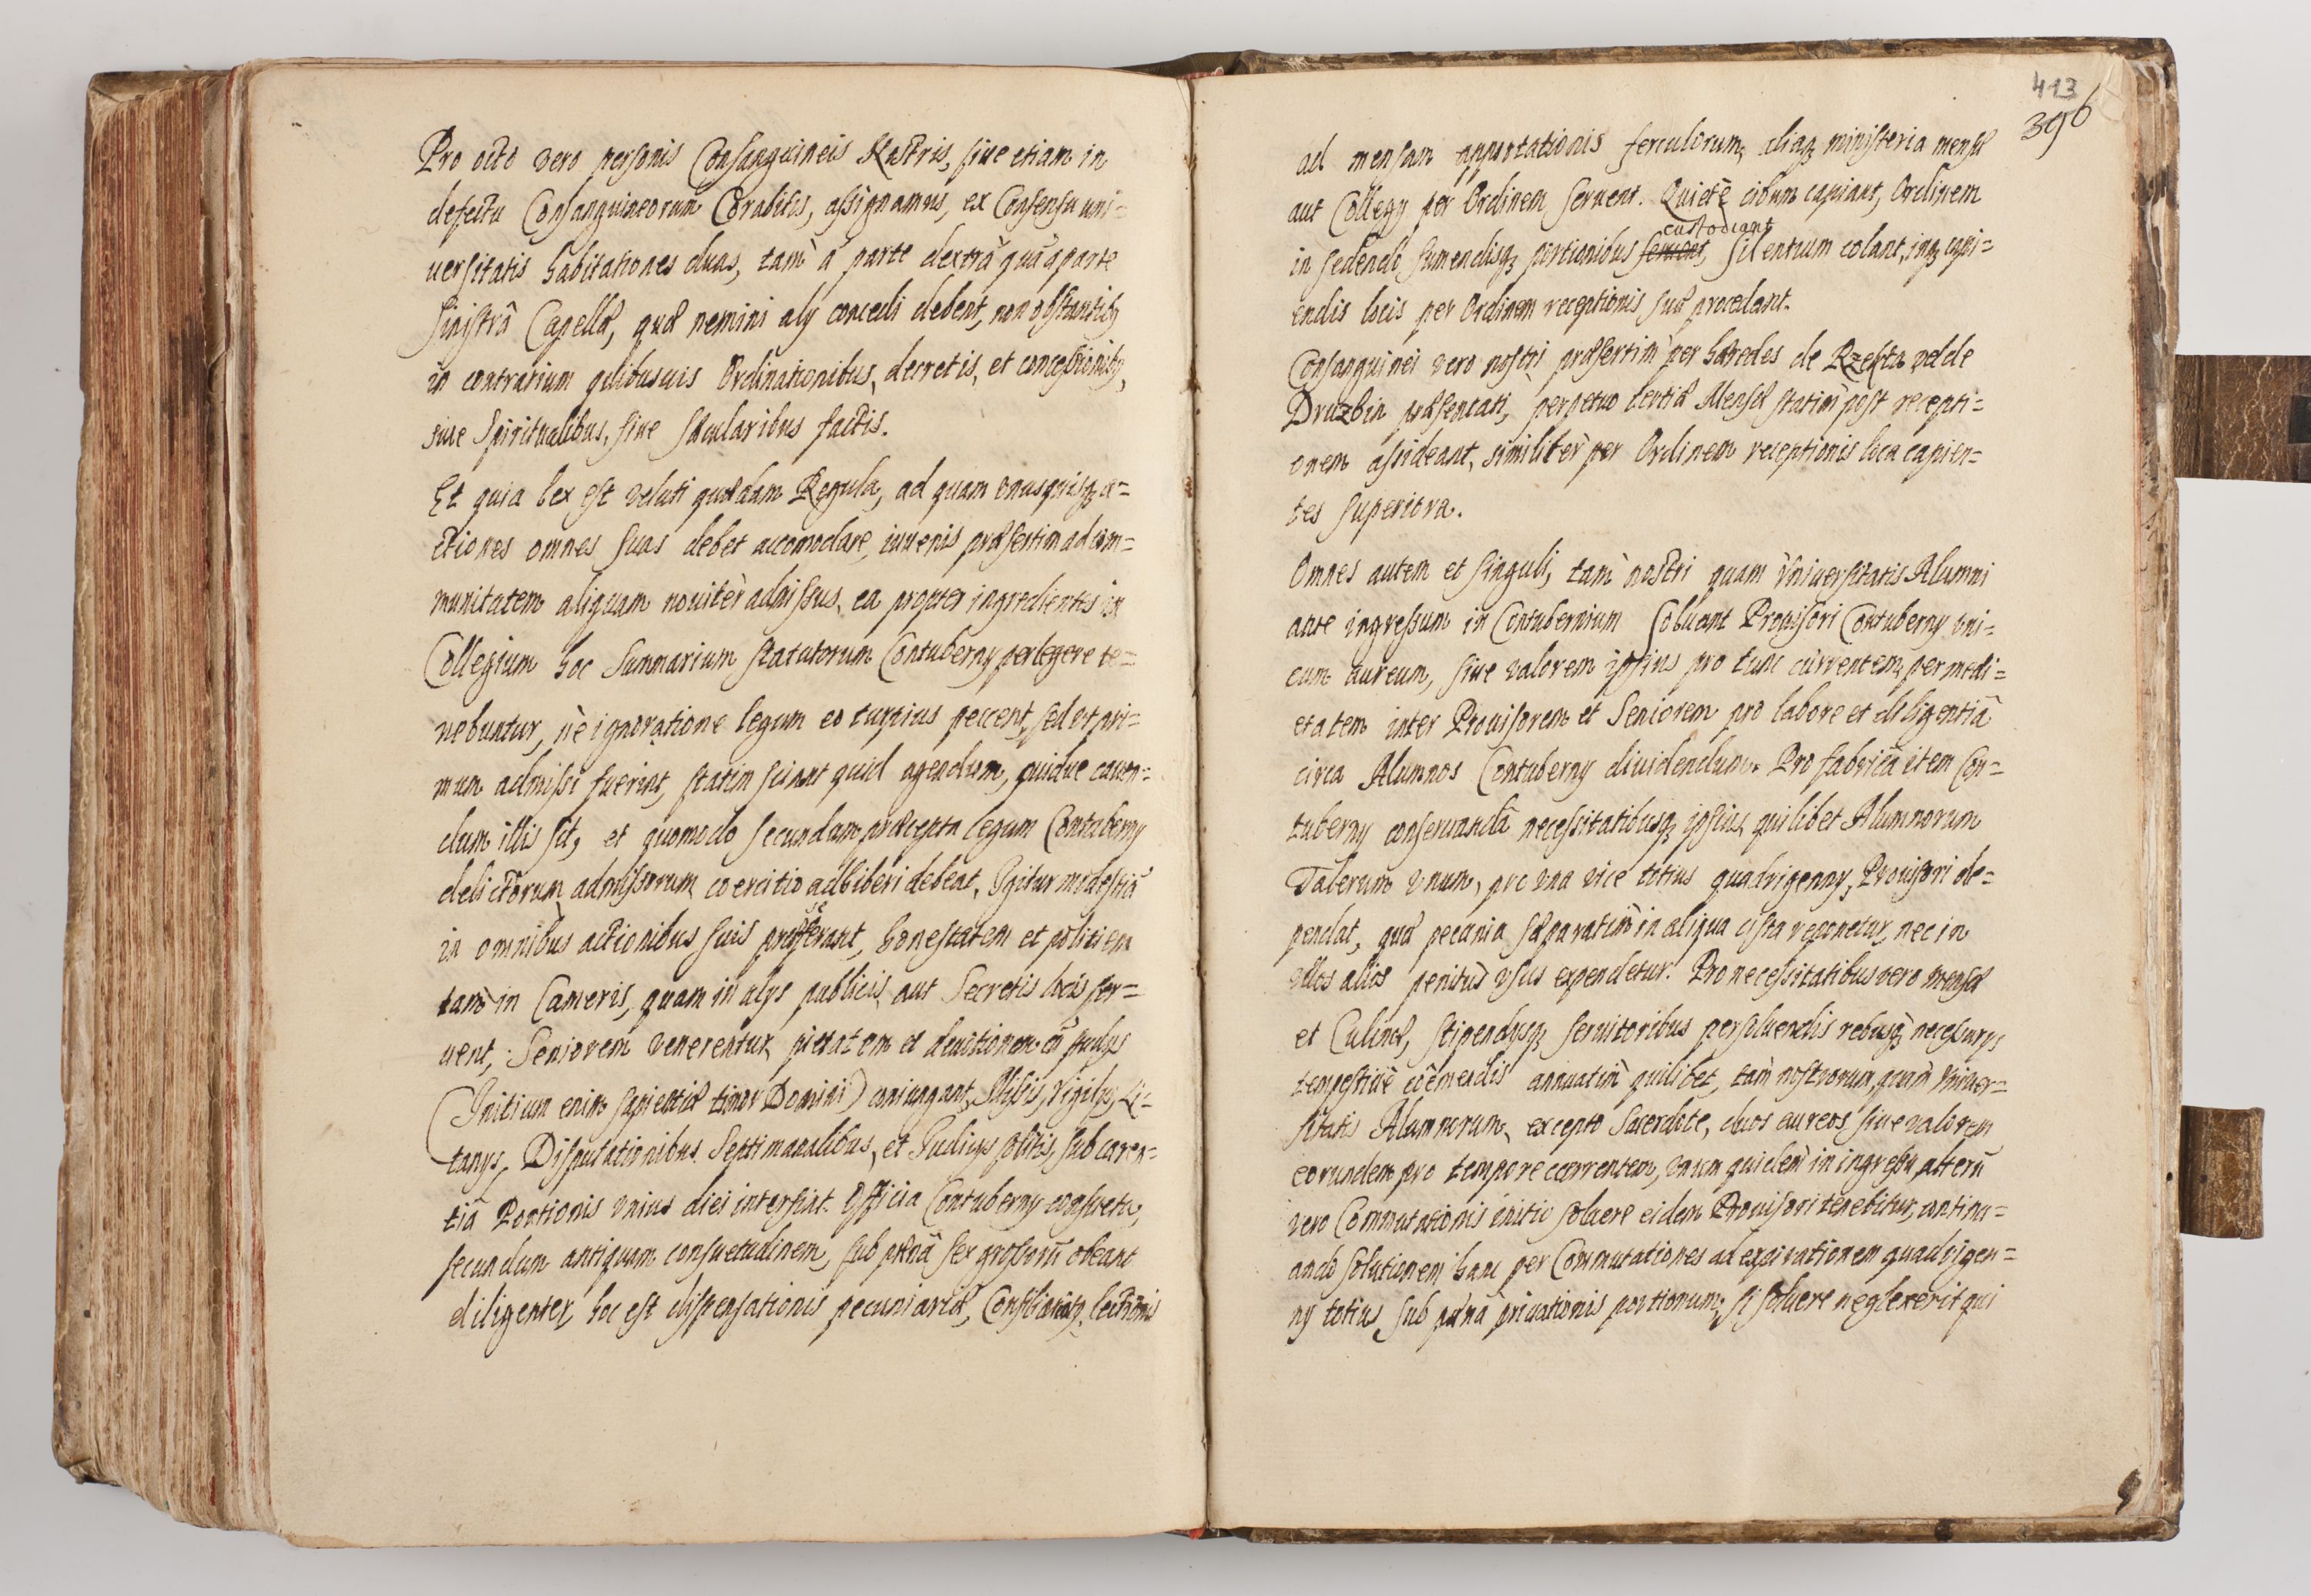 Pro octo vero personis Consanguineis Nostris, siue etiam in
defectu Consanguineorum Corabitis, assignamus, ex Consensu uni=
uersitatis habitationes duas, tam à parte dextrâ quâ à parte
sinistrâ Capellæ, quæ nemini alÿ concedi debent, non obstantibꝫ
in contrarium qłibusuis Ordinationibus, decretis, et concessionibꝫ,
siue Spiritualibus, siue Sæcularibus factis.
Et quia lex est veluti quædam Regula, ad quam vnusquisqꝫ a=
ctiones omnes suas debet accomodare, iuuenis præsertim ad com=
munitatem aliquam nouitèr admissus, ea propter ingredientes in
Collegium hoc Summarium statutorum Contubernÿ perlegere te=
nebuntur, nè ignoratione legum eo turpius peccent, sed vt pri=
mum admissi fuerint, statim sciant quid agendum, quidue cauen=
dum illis sit, et quomodo secundum præcepta legum Contubernÿ
delictorum admissorum coercitio adhiberi debeat. Igitur modestiã
in omnibus actionibus suis præ se ferant, honestatem et politiem
tam in Cameris, quam in alÿs publicis aut Secretis locis ser=
uent, Seniorem venerentur, pietatem et deuotionem cũ studÿs
(Initium enim sapientiæ timor Domini) coniungant, Missis, Vigilÿs, Li=
tanÿs, Disputationibus Septimanalibus, et Iudicÿs solitis, sub caren=
tiâ Portionis vnius diei intersint. Officia Contubernÿ consueta,
secundum antiquam consuetudinem, sub pænâ sex grossorũ obeant
diligenter, hoc est dispensationis pecuniariæ, lectionis
413
396
ad mensam apportationis ferculorum, aliaqꝫ ministeria mensæ
aut Collegÿ per Ordinem seruent. Quietè cibum capiant, Ordinem
custodiant
in sedendo, sumendisqꝫ portionibus seruent, silentium colant, inqꝫ capi=
endis locis per Ordinem receptionis suæ procedant.
Consanguinei vero nostri præsertim per hæredes de Rzekta vel de
Druzbin præsentati, perpetuo tertiæ Mensæ statim post recepti=
onem assideant, similitèr per Ordinem receptionis loca capien=
tes superiora.
Omnes autem et singuli, tam nostri quam Vniuersitatis Alumni
ante ingressum in Contubernium soluant Prouisori Contubernÿ vni=
cum aureum, siue valorem ipsius pro tunc currentem, per medi=
etatem inter Prouisorem et Seniorem pro labore et diligentiâ
circa Alumnos Contubernÿ diuidendum. Pro fabricâ item Con=
tubernÿ conseruandâ necessitatibusqꝫ ipsius, quilibet Alumnorum
Talerum vnum, pro vna vice totius quadriennÿ, Prouisori de=
pendat, quæ pecunia separatim in aliqua cista reponetur, nec in
vllos alios penitùs vsus expendetur. Pro necessitatibus vero mensæ
et Culinæ, stipendÿsqꝫ seruitoribus persoluendis rebusqꝫ necessarÿs
tempestiuè coëmendis annuatim quilibet, tam nostrorum, quam Vniuer=
sitatis Alumnorum, excepto Sacerdote, duos aureos siue valorem
eorundem pro tempore currentem, vnum quidem in ingressu alterũ
vero Commutationis initio soluere eidem Prouisori tenebitur, continu=
ando solutionem hanc per Commutationes ad expirationem quadrien=
nÿ totius, sub pænâ priuationis portionum, si soluere neglexerit qui